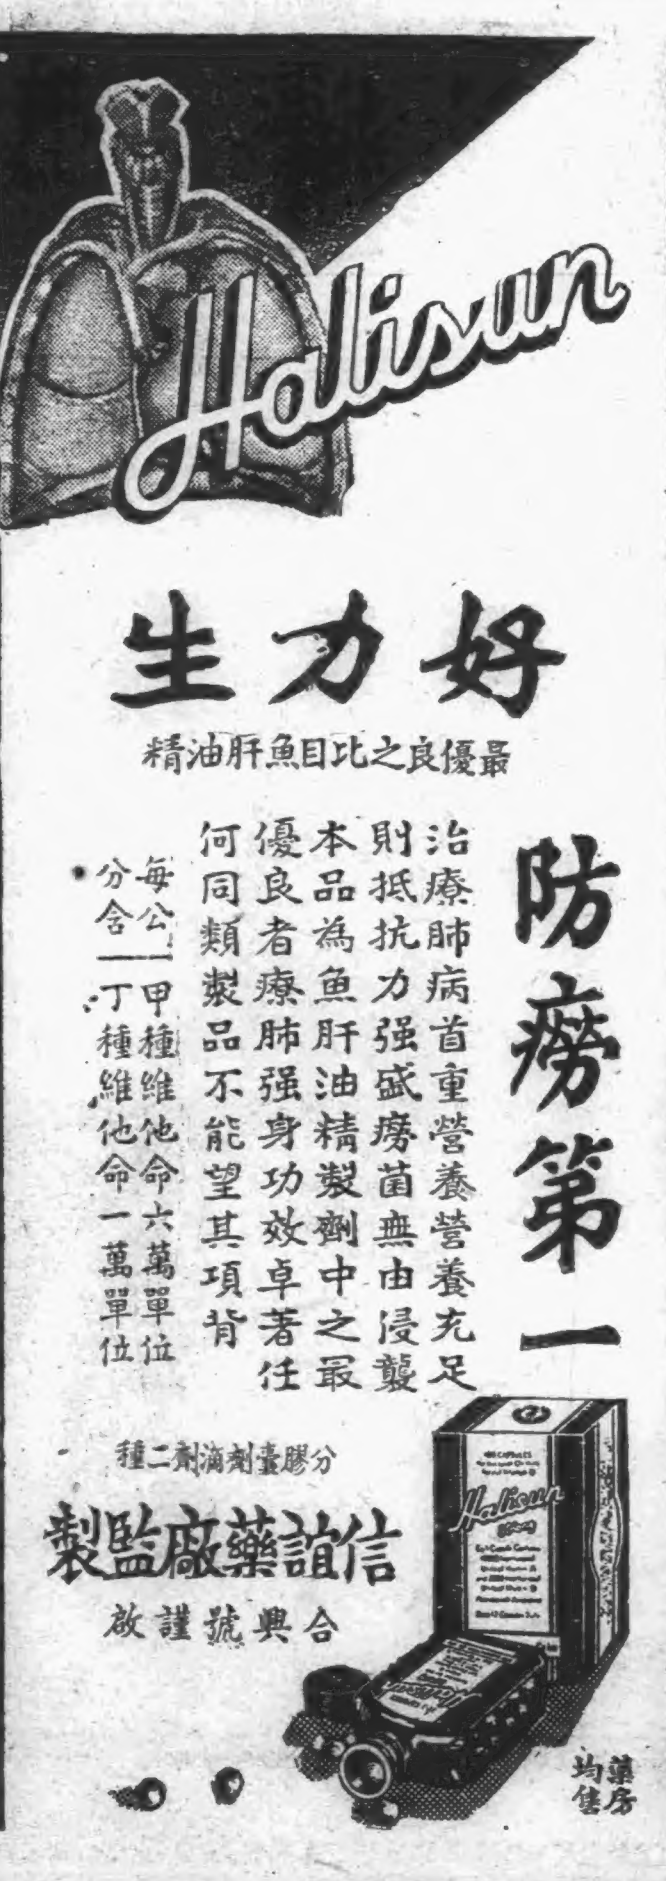 Halisun
好力生
最優良之比目魚肝油精
防癆第一
治療肺病首重營養營養充足
則抵抗力强盛癆菌無由浸襲
本品為魚肝油精製劑中之最
優良者療肺强身功效卓著任
何同類製品不能望其項背
每公分含
甲種維他命六萬單位
丁種維他命一萬單位
分膠囊劑滴劑二種
信誼藥廠監製
合興號謹啟
Halisun
藥房
均售